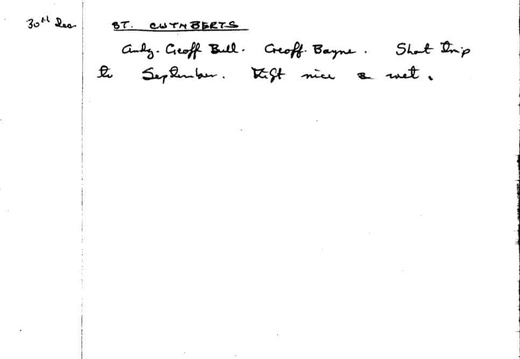 30th Dec. ST. CUTHBERTS
Andy. Geoff Bull. Geoff. Bayne. Short trip
to September. Rift nice & wet.